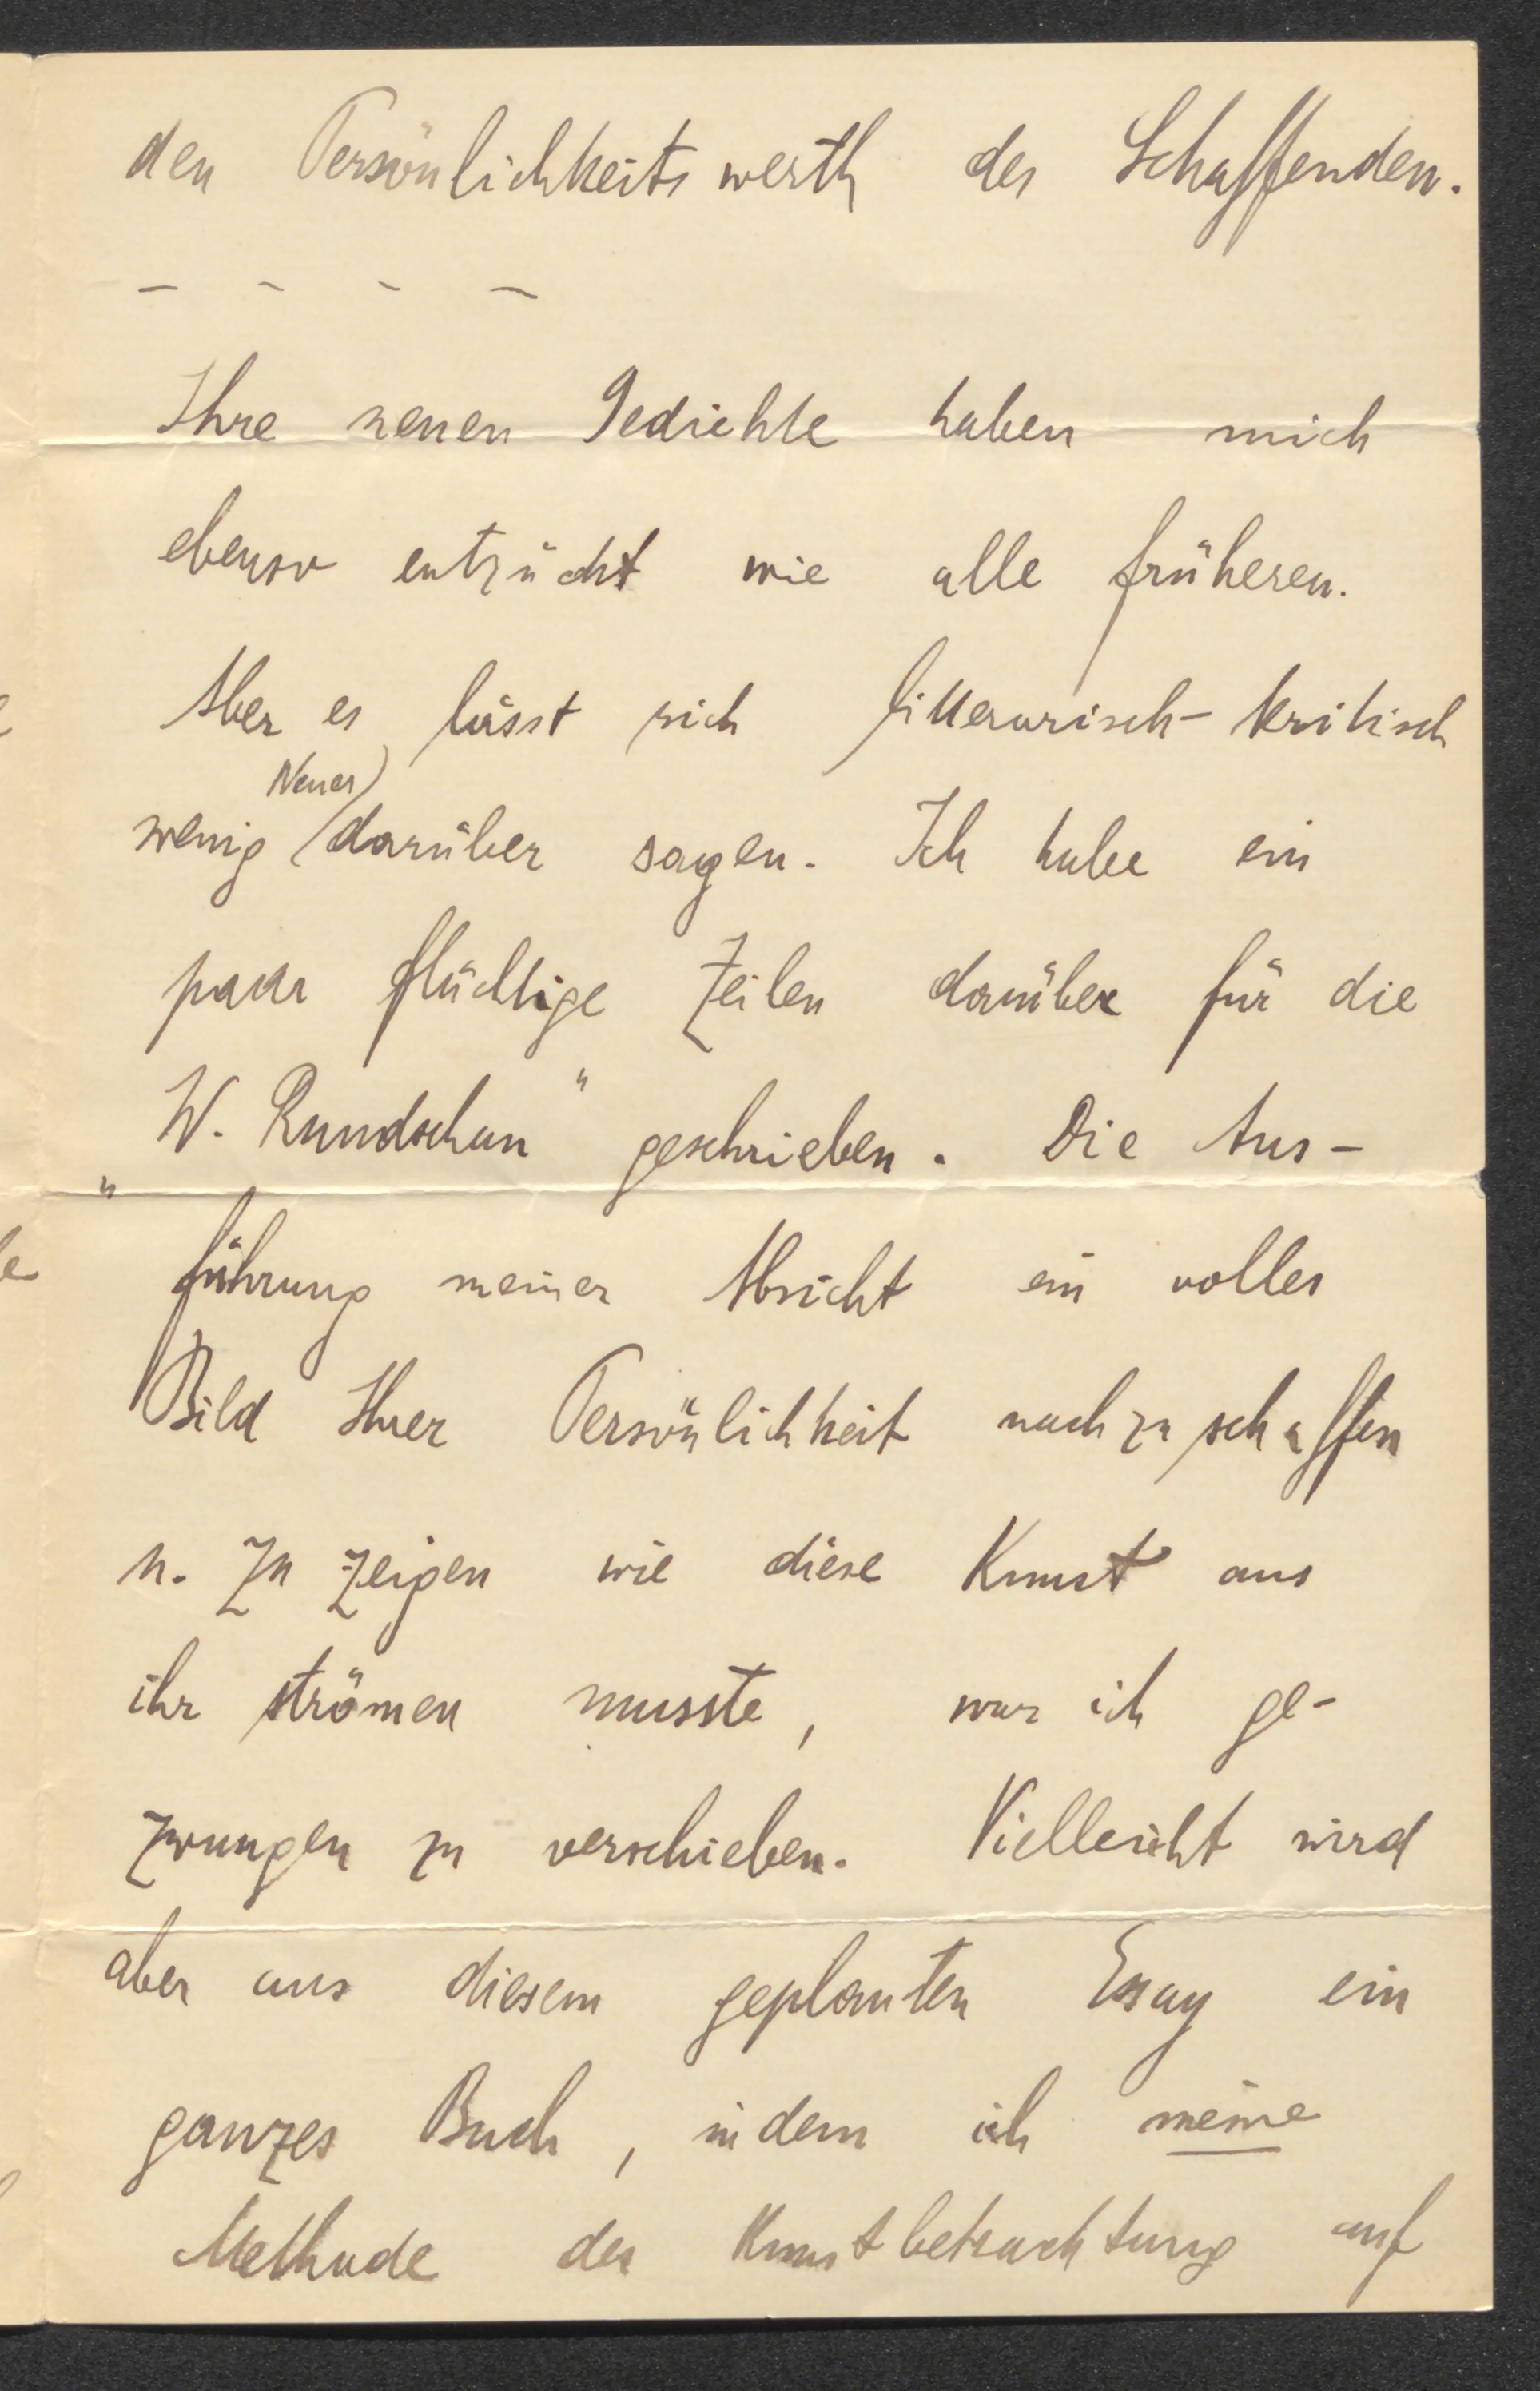 den Persönlichkeitswerth des Schaffenden.
– – – –
Ihre neuen Gedichte haben mich
ebenso entzückt wie alle früheren.
Aber es lässt sich litterarisch-kritisch
Neues
wenig darüber sagen. Ich habe ein
paar flüchtige Zeilen darüber für die
„W. Rundschau" geschrieben. Die Aus-
führung meiner Absicht ein volles
Bild Ihrer Persönlichkeit nachzuschaffen
u. zu zeigen wie diese Kunst aus
ihr strömen musste, war ich ge-
zwungen zu verschieben. Vielleicht wird
aber aus diesem geplanten Essay ein
ganzes Buch, in dem ich meine
Methode der Kunstbetrachtung auf